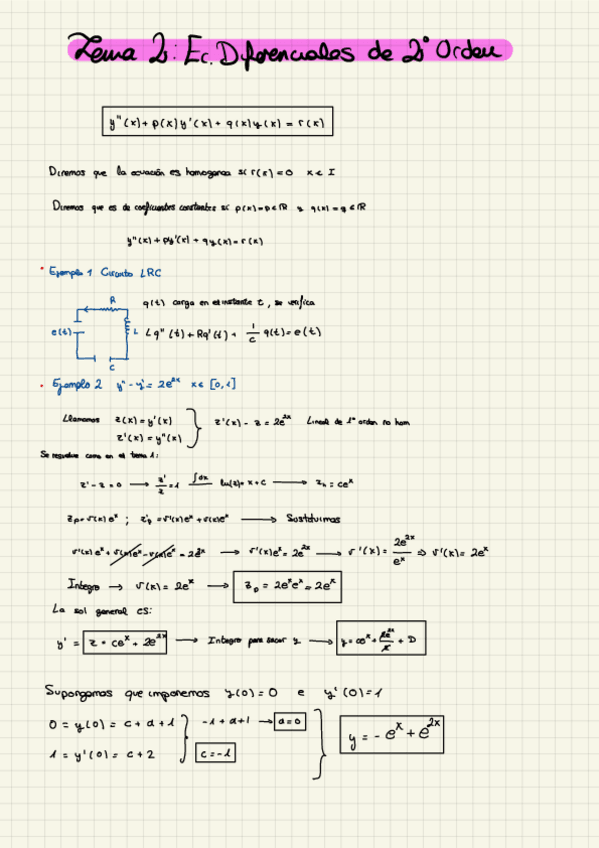 Tema 2: Ec. Diferenciales de 2º Orden
y''(x) + p(x)y'(x) + q(x)y(x) = r(x)
Diremos que la ecuación es homogenea si r(x) = 0 x ∈ I
Diremos que es de coeficientes constantes si p(x)=p∈ℝ y q(x)=q∈ℝ
y''(x) + py'(x) + qy(x) = r(x)
• Ejemplo 1 Circuito LRC
R
q(t) carga en el instante t, se verifica
e(t) L Lq''(t) + Rq'(t) + 1/C q(t) = e(t)
C
• Ejemplo 2 y'' - y' = 2e^2x x ∈ [0,1]
Llamamos z(x) = y'(x)
z'(x) = y''(x)
z'(x) - z = 2e^2x Lineal de 1º orden no hom
Se resuelve como en el tema 1:
z' - z = 0 → z'/z = 1 ∫dx ln(z) = x + c → z_h = ce^x
z_p = v(x)e^x ; z'_p = v'(x)e^x + v(x)e^x → Sustituimos
v'(x)e^x + v(x)e^x - v(x)e^x = 2e^2x → v'(x)e^x = 2e^2x → v'(x) = 2e^2x/e^x ⇒ v'(x) = 2e^x
Integro → v(x) = 2e^x → z_p = 2e^x e^x = 2e^x
La sol general es:
y' = z = ce^x + 2e^2x → Integro para sacar y → y = ce^x + 2e^2x/2 + D
Supongamos que imponemos y(0) = 0 e y'(0) = 1
0 = y(0) = c + d + 1 } -1 + d + 1 → d = 0
1 = y'(0) = c + 2 c = -1
y = -e^x + e^2x